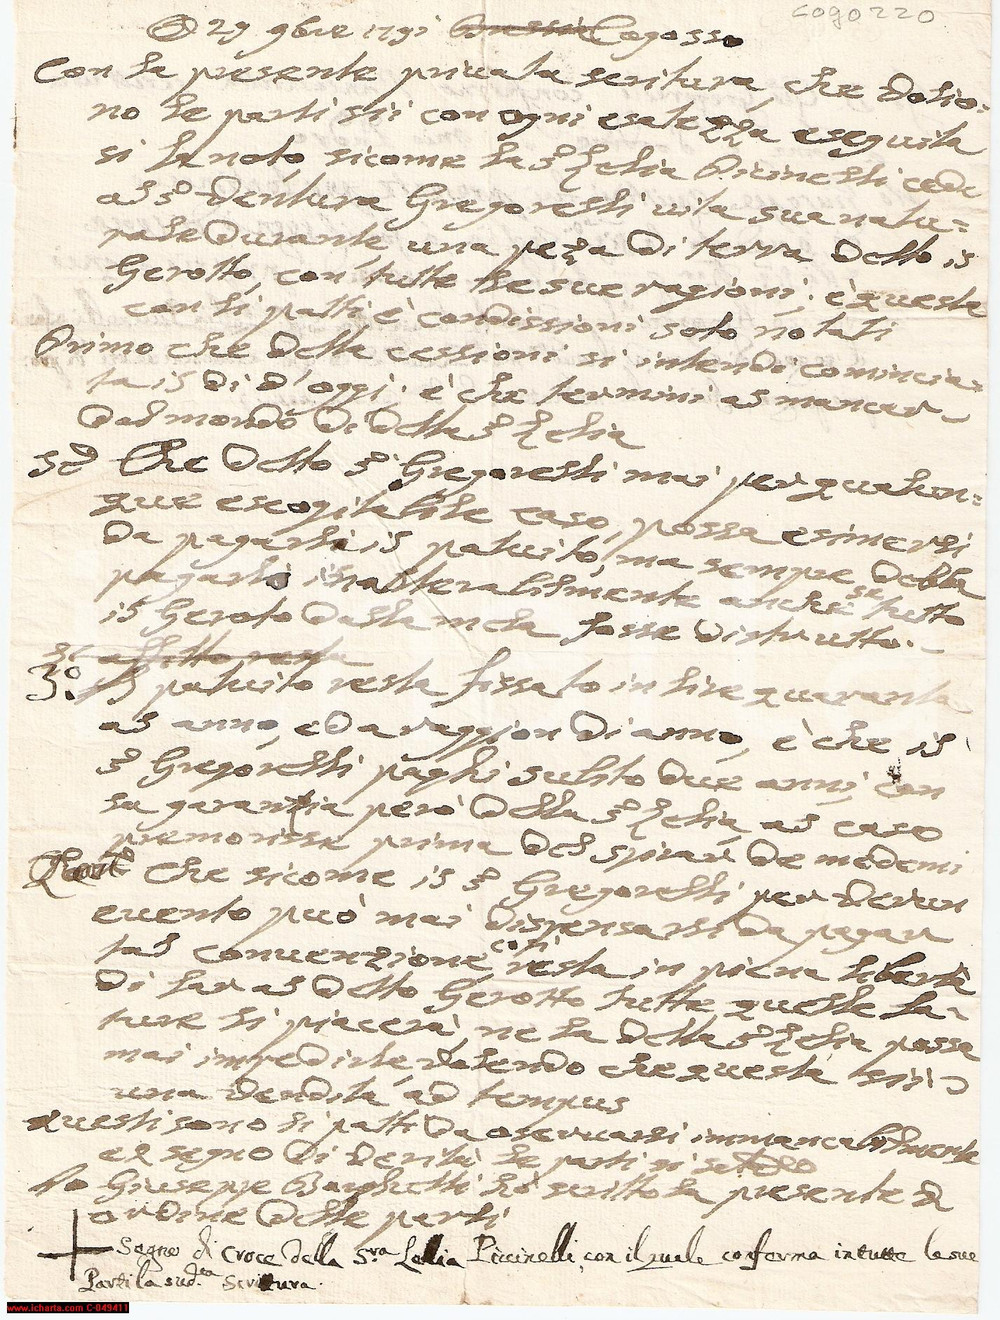 cogozzo
A 29 9bre 1791 Cogosso
Con la presente privata scritura che voliono
no le parti sii con ogni esatezza eseguita
si fa noto, sicome la Sra Lelia Picinelli cede
al Sr Ventura Gregorelli vita sua natu=
rale durante, una pezza di terra detto il
Gerotto, con tutte le sue ragioni, è questa
con li patti è condissioni soto notati
Primo che detta cessioni si intendi comincia=
ta il di d'oggi, è che termini al mancar
dal mondo di detta Sra Lelia
2do Che detto Sr Gregorelli mai per qualun=
que escogitabile caso, possa esimersi
da pagarli il patuito, ma sempre debba
pagarli inalterabilmente anche se tutto
il Geroto dalla mela fosse distrutto.
3o affitto resta
3o Il patuito resta fissato in lire quaranta
al anno, e da raggion di anno, è che il
Sr Gregorelli paghi subito due anni, con
sua garanzia però della Sra Lelia, al caso
premorisse prima del spirar de medemi
Che sicome il Sr Gregorelli per verun
evento può mai dispensarsi da pagar
tal convenzione, cosi resta in piena libertà
di far al detto Gerotto tutte quelle fa=
ture li piacerà, ne la detta Sra Lelia possa
mai impedirle, volendo che questa sii
una vendita ad tempus
Questi sono li patti da osservarsi immancabilmente
e in segno di verità le parti si
Io Giuseppe Borghetti hò scritto la presente d
ordine delle parti
Segno di Croce della Sra Lellia Piccinelli, con il quale conferma in tutte le sue
Parti la sudta Scrittura.
www.icharta.com C-049411